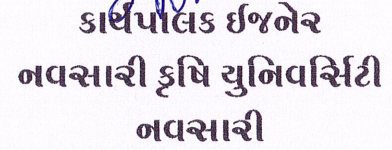 કાર્યપાલક ઈજનેર
નવસારી કૃષિ યુનિવર્સિટી
નવસારી